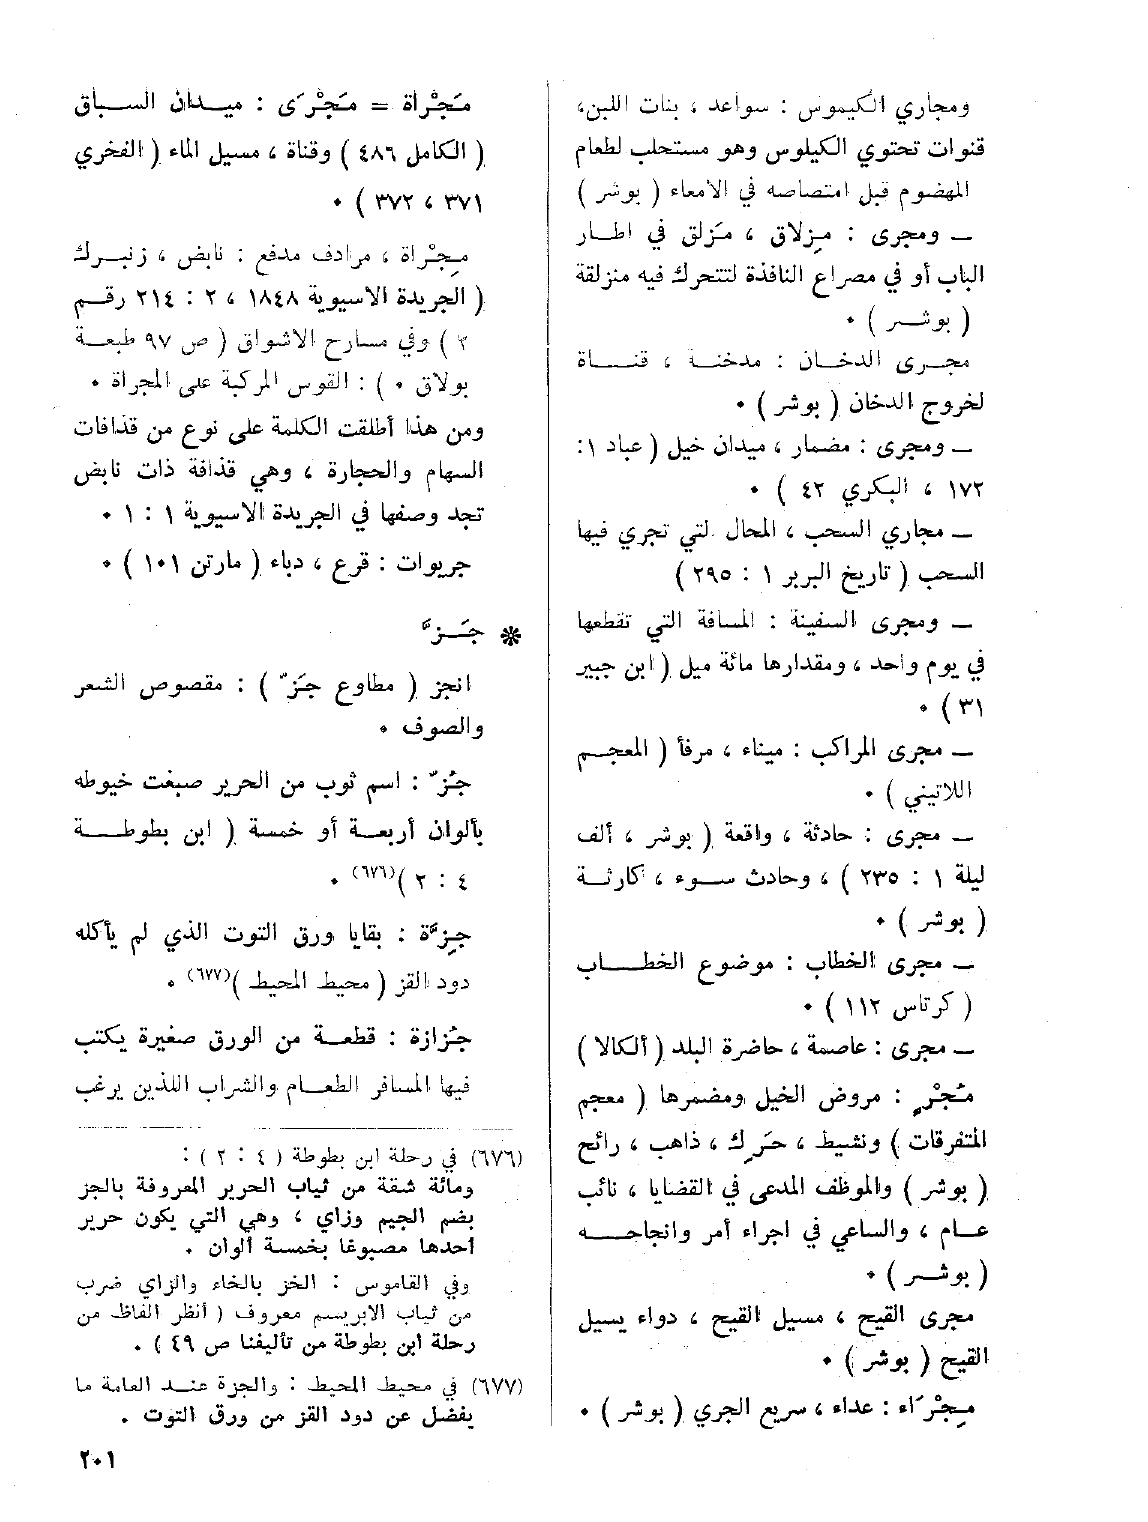 ومجاري الكيموس : سواعد ، بنات اللبن،
قنوات تحتوي الكيلوس وهو مستحلب لطعام
المهضوم قبل امتصاصه في الامعاء ( بوشر )
— ومجرى : مِزلاق ، مَزلق في اطار
الباب أو في مصراع النافذة لتتحرك فيه منزلقة
( بوشر ) ٠
مجرى الدخان : مدخنة ، قناة
لخروج الدخان ( بوشر ) ٠
— ومجرى : مضمار ، ميدان خيل ( عباد ١ :
١٧٢ ، البكري ٤٢ ) ٠
— مجاري السحب ، المحال لتي تجري فيها
السحب ( تاريخ البربر ١ : ٢٩٥ )
— ومجرى السفينة : المسافة التي تقطعها
في يوم واحد ، ومقدارها مائة ميل ( ابن جبير
٣١ ) ٠
— مجرى المراكب : ميناء ، مرفأ ( المعجم
اللاتيني ) ٠
— مجرى : حادثة ، واقعة ( بوشر ، ألف
ليلة ١ : ٢٣٥ ) ، وحادث سوء ، كارثة
( بوشر ) ٠
— مجرى الخطاب : موضوع الخطاب
( كرتاس ١١٢ ) ٠
— مجرى : عاصمة ، حاضرة البلد ( ألكالا )
مُجْرٍ : مروض الخيل ومضمرها ( معجم
المتفرقات ) ونشيط ، حَرِك ، ذاهب ، رائح
( بوشر ) والموظف المدعى في القضايا ، نائب
عام ، والساعي في اجراء أمر وانجاحه
( بوشر ) ٠
مجرى القيح ، مسيل القيح ، دواء يسيل
القيح ( بوشر ) ٠
مِجْرَاء : عداء ، سريع الجري ( بوشر ) ٠
مَجْراة = مَجْرَى : ميدان السباق
( الكامل ٤٨٦ ) وقناة ، مسيل الماء ( الفخري
٣٧١ ، ٣٧٢ ) ٠
مِجْراة ، مرادف مدفع : نابض ، زنبرك
( الجريدة الاسيوية ١٨٤٨ ، ٢ : ٢١٤ رقم
٢ ) وفي مسارح الاشواق ( ص ٩٧ طبعة
بولاق ٠ ) : القوس المركبة على المجراة ٠
ومن هذا أطلقت الكلمة على نوع من قذافات
السهام والحجارة ، وهي قذافة ذات نابض
تجد وصفها في الجريدة الاسيوية ١ : ١ ٠
جريوات : قرع ، دباء ( مارتن ١٠١ ) ٠
❋ جَزّ
انجز ( مطاوع جَزّ ) : مقصوص الشعر
والصوف ٠
جُزّ : اسم ثوب من الحرير صبغت خيوطه
بألوان أربعة أو خمسة ( ابن بطوطة
٤ : ٢ )(٦٧٦) ٠
جِزّة : بقايا ورق التوت الذي لم يأكله
دود القز ( محيط المحيط )(٦٧٧) ٠
جُزازة : قطعة من الورق صغيرة يكتب
فيها المسافر الطعام والشراب اللذين يرغب
(٦٧٦) في رحلة ابن بطوطة ( ٤ : ٢ ) :
ومائة شقة من ثياب الحرير المعروفة بالجز
بضم الجيم وزاي ، وهي التي يكون حرير
أحدها مصبوغا بخمسة ألوان ٠
وفي القاموس : الخز بالخاء والزاي ضرب
من ثياب الابريسم معروف ( أنظر الفاظ من
رحلة ابن بطوطة من تأليفنا ص ٤٩ ) ٠
(٦٧٧) في محيط المحيط : والجزة عند العامة ما
يفضل عن دود القز من ورق التوت ٠
٢٠١